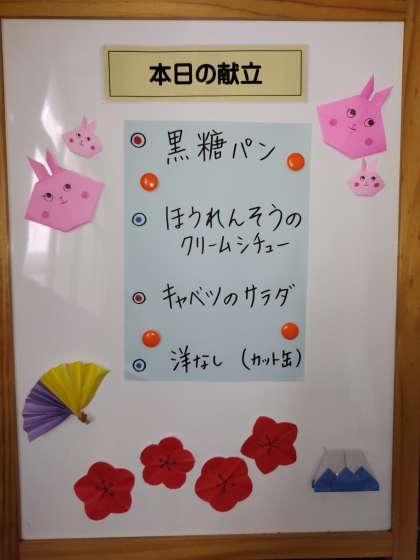 本日の献立
黒糖パン
ほうれんそうの
クリームシチュー
キャベツのサラダ
洋なし（カット缶）